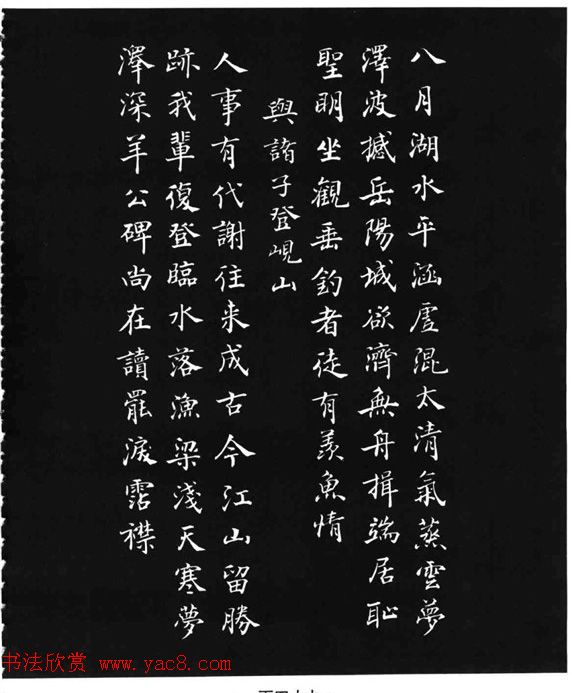 八月湖水平涵虛混太清氣蒸雲夢
澤波撼岳陽城欲濟無舟揖端居恥
聖明坐觀垂釣者徒有羨魚情
與諸子登峴山
人事有代謝往来成古今江山留勝
跡我輩復登臨水落漁梁淺天寒夢
澤深羊公碑尚在讀罷淚霑襟
书法欣赏 www.yac8.com